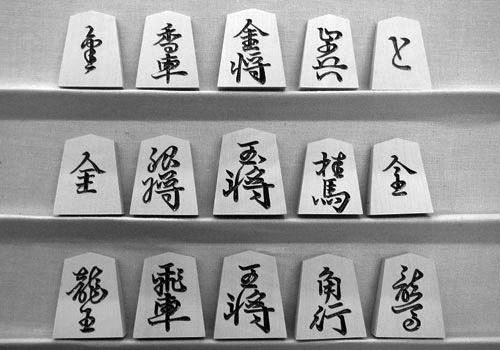 香車 金将 歩兵 と
銀将 玉将 桂馬
龍王 飛車 王将 角行 龍馬